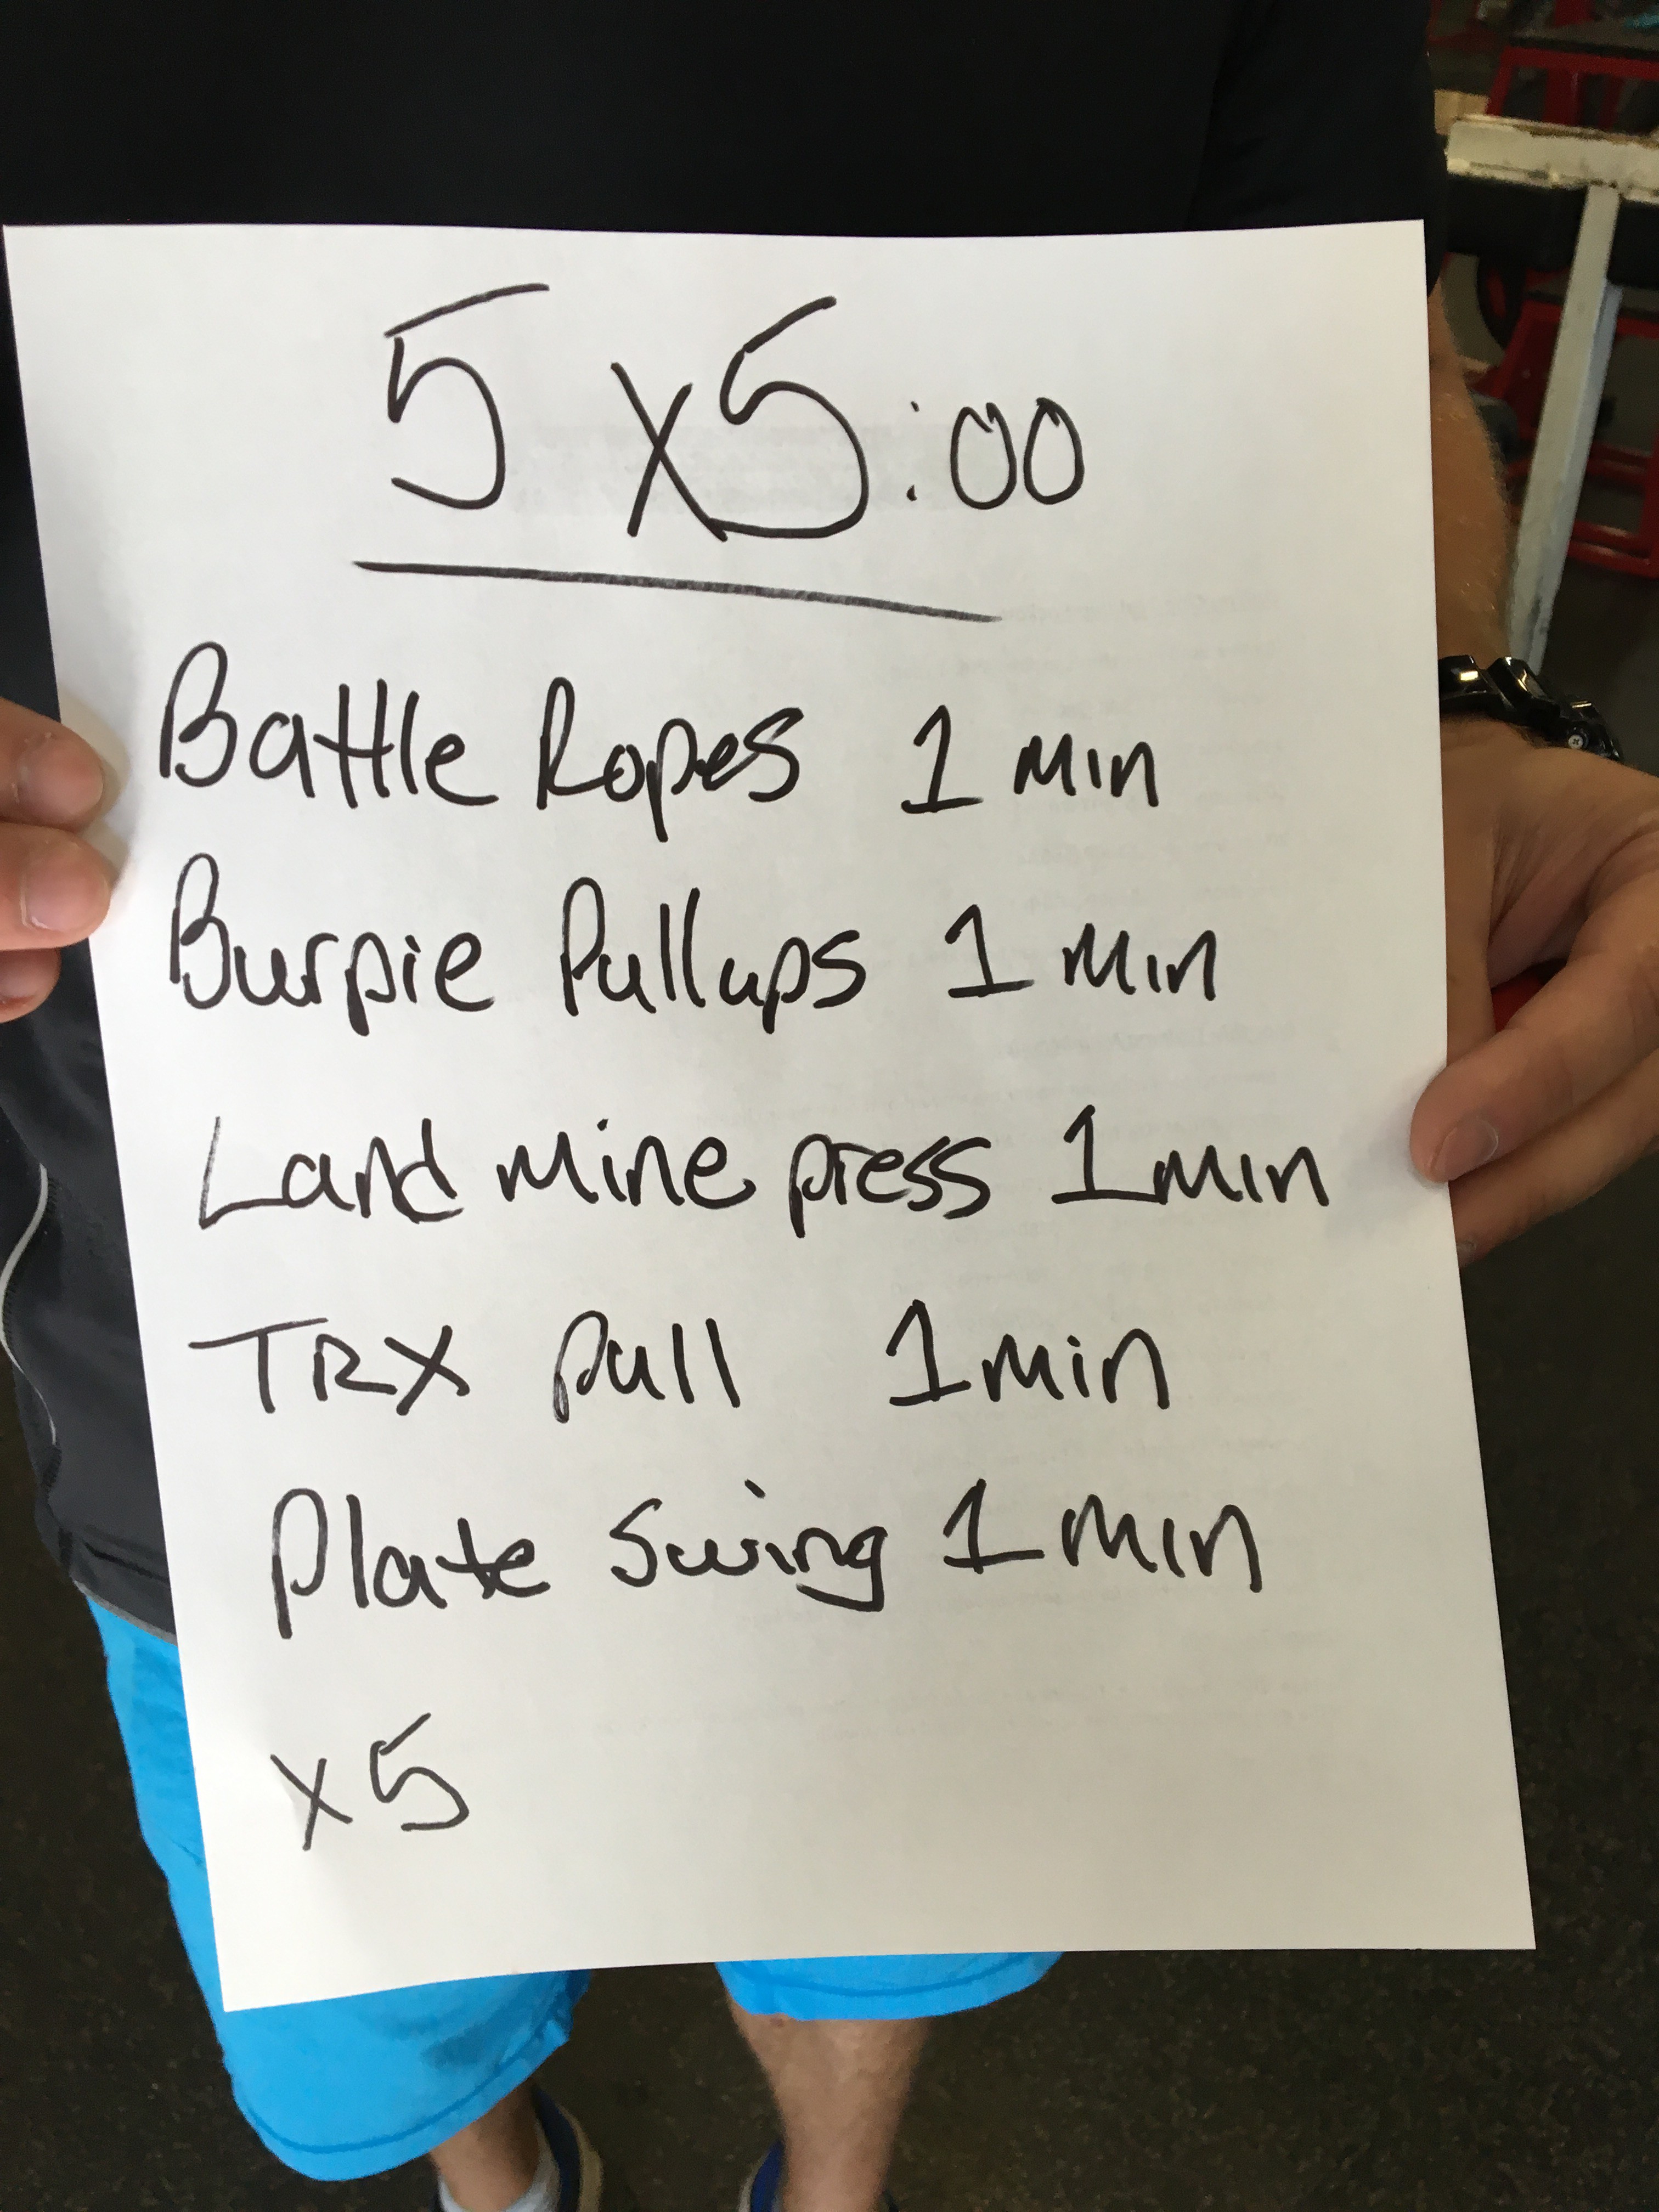 5 x 5:00
Battle Ropes 1 Min
Burpie Pullups 1 Min
Land Mine press 1 Min
TRX Pull 1 Min
Plate Swing 1 Min
x 5